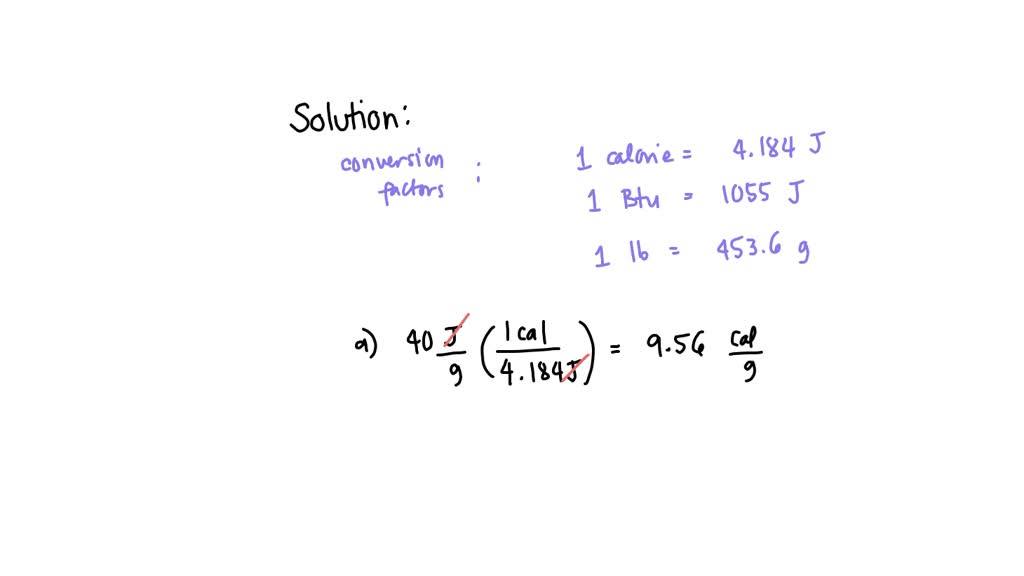 Solution:
conversion factors : 1 calorie = 4.184 J
1 Btu = 1055 J
1 lb = 453.6 g
a) 40 J/g (1 cal / 4.184 J) = 9.56 cal/g